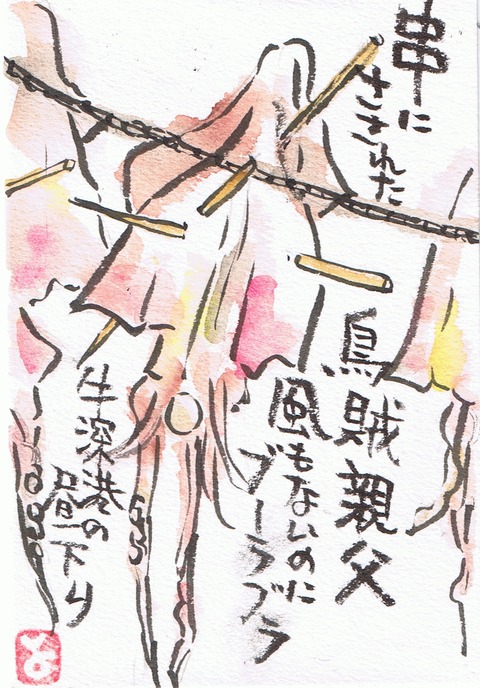 串に
さされた
烏賊親父
風もないのに
ブーラブラ
牛深港の
昼下り